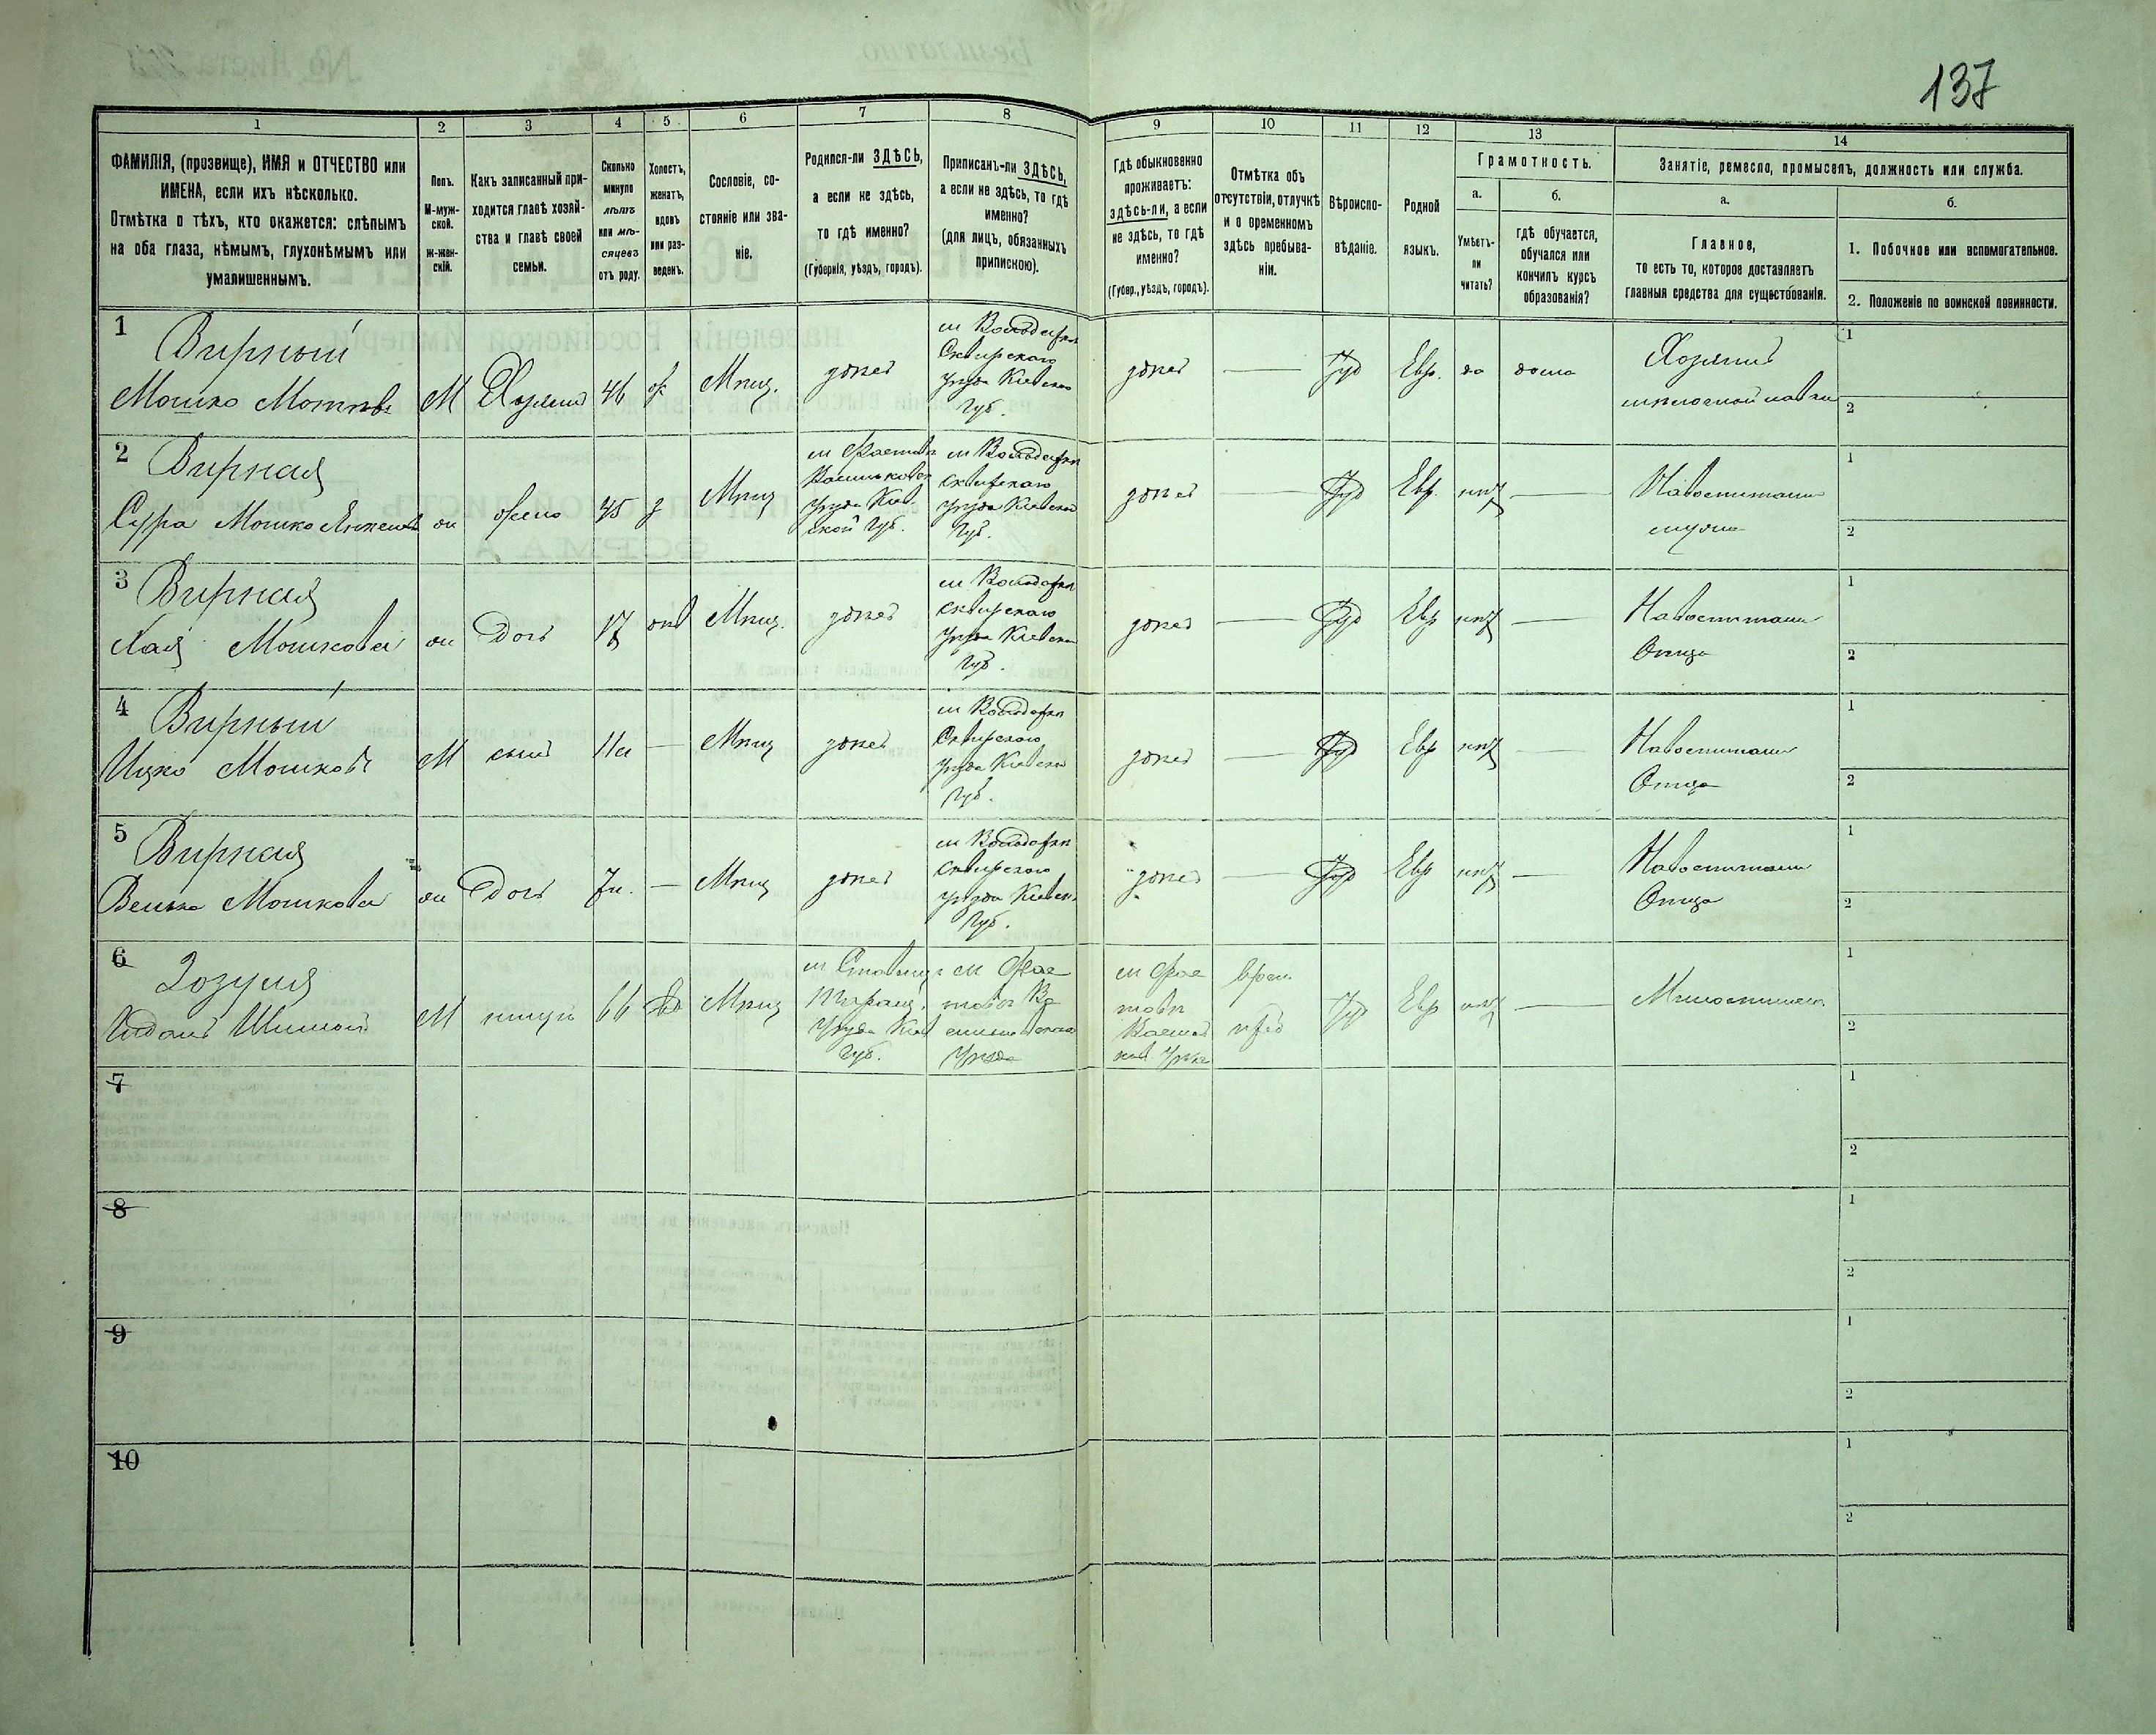 137
1 2 3 4 5 6 7 8 9 10 11 12 13 14
ФАМИЛІЯ, (прозвище), ИМЯ и ОТЧЕСТВО или
ИМЕНА, если ихъ нѣсколько.
Отмѣтка о тѣхъ, кто окажется: слѣпымъ
на оба глаза, нѣмымъ, глухонѣмымъ или
умалишеннымъ.
Полъ.
М-муж-
ской.
ж-жен-
скій.
Какъ записанный при-
ходится главѣ хозяй-
ства и главѣ своей
семьи.
Сколько
минуло
лѣтъ
или мѣ-
сяцевъ
отъ роду.
Холостъ,
женатъ,
вдовъ
или раз-
веденъ.
Сословіе, со-
стояніе или зва-
ніе.
Родился-ли ЗДѢСЬ,
а если не здѣсь,
то гдѣ именно?
(Губернія, уѣздъ, городъ).
Приписанъ-ли ЗДѢСЬ,
а если не здѣсь, то гдѣ
именно?
(для лицъ, обязанныхъ
припискою).
Гдѣ обыкновенно
проживаетъ:
здѣсь-ли, а если
не здѣсь, то гдѣ
именно?
(Губер., уѣздъ, городъ).
Отмѣтка объ
отсутствіи, отлучкѣ
и о временномъ
здѣсь пребыва-
ніи.
Вѣроиспо-
вѣданіе.
Родной
языкъ.
Грамотность.
а.
Умѣетъ-
ли
читать?
б.
гдѣ обучается,
обучался или
кончилъ курсъ
образованія?
Занятіе, ремесло, промыселъ, должность или служба.
а.
Главное,
то есть то, которое доставляетъ
главныя средства для существованія.
б.
1. Побочное или вспомогательное.
2. Положеніе по воинской повинности.
1
Вирный
Мошко
М
Хозяинъ
46
ж
Мѣщ.
здѣсь
м Володарки
Сквирскаго
Уѣзда Кіевской
Губ.
здѣсь
—
Іуд
Евр.
да
дома
Хозяинъ
мѣлочной лавки
1
2
2
Вирная
Сурра
ж
жена
45
з
Мѣщ
м Фастовъ
Васильковск
Уѣзда Кіев-
ской Губ.
м Володарки
Сквирскаго
Уѣзда Кіевской
Губ.
здѣсь
—
Іуд
Евр.
нѣт
—
На воспитани
мужа
1
2
3
Вирная
Хая Мошкова
ж
Дочь
17
Мѣщ.
здѣсь
м Володарки
Сквирскаго
Уѣзда Кіевской
Губ.
здѣсь
—
Іуд
Евр
нѣт
—
На воспитани
Отца
1
2
4
Вирный
Ицко Мошковъ
М
сынъ
11л
—
Мѣщ
здѣсь
м Володарки
Сквирскаго
Уѣзда Кіевской
Губ.
здѣсь
—
Іуд
Евр
нѣт
—
На воспитани
Отца
1
2
5
Вирная
Мошкова
ж
Дочь
7л.
—
Мѣщ
здѣсь
м Володарки
Сквирскаго
Уѣзда Кіевской
Губ.
здѣсь
—
Іуд
Евр
нѣт
—
На воспитани
Отца
1
2
6
Зозуля
М
66
вд
Мѣщ
Уѣзда Кіев
Губ.
м Фас
това Ва
сильковскаго
Уѣзда
м Фас
това
врем.
Іуд
Евр
нѣт
—
1
2
7
1
2
8
1
2
9
1
2
10
1
2